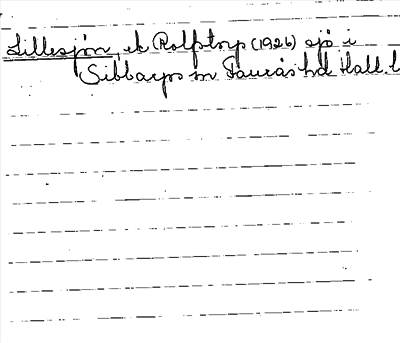 Lillesjön, ek Rolfstorp (1926) sjö i
Sibbarps sn Faurås hd Hall. l